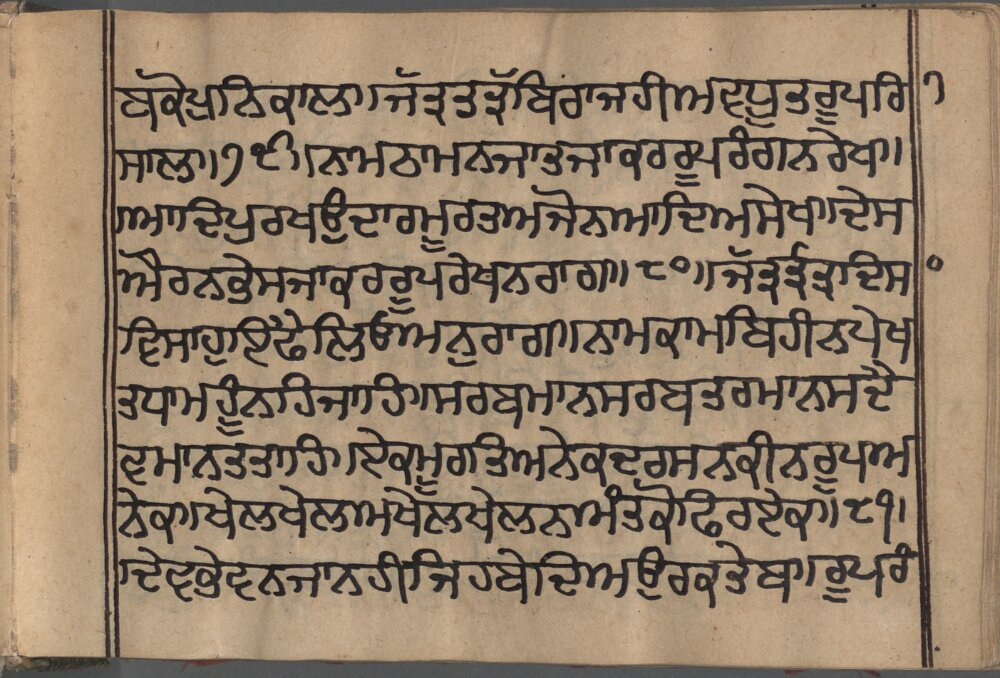 ਬਕੋਪੁਨਿਕਾਲ॥ਜੱਤ੍ਰਤੱਤ੍ਰਬਿਰਾਜਹੀਅਵਧੂਤਰੂਪਰਿ
ਸਾਲ॥੭੯॥ਨਾਮਠਾਮਨਜਾਤਜਾਕਰਰੂਪਰੰਗਨਰੇਖ॥
ਆਦਿਪੁਰਖਉਦਾਰਮੂਰਤਅਜੋਨਆਦਿਅਸੇਖ॥ਦੇਸ
ਔਰਨਭੇਸਜਾਕਰਰੂਪਰੇਖਨਰਾਗ॥੮੦॥ਜੱਤ੍ਰਤੱਤ੍ਰਦਿਸ
ਵਿਸਾਹੁਇਫੈਲਿਓਅਨੁਰਾਗ॥ਨਾਮਕਾਮਬਿਹੀਨਪੇਖ
ਤਧਾਮਹੂੰਨਹਿਜਾਹਿ॥ਸਰਬਮਾਨਸਰਬਤਰਮਾਨਸਦੈ
ਵਮਾਨਤਤਾਹਿ॥ਏਕਮੂਰਤਿਅਨੇਕਦਰਸਨਕੀਨਰੂਪਅ
ਨੇਕ॥ਖੇਲਖੇਲਅਖੇਲਖੇਲਨਅੰਤਕੋਫਿਰਏਕ॥੮੧॥
ਦੇਵਭੇਵਨਜਾਨਹੀਜਿਹਬੇਦਿਅਉਰਕਤੇਬ॥ਰੂਪਰੰ